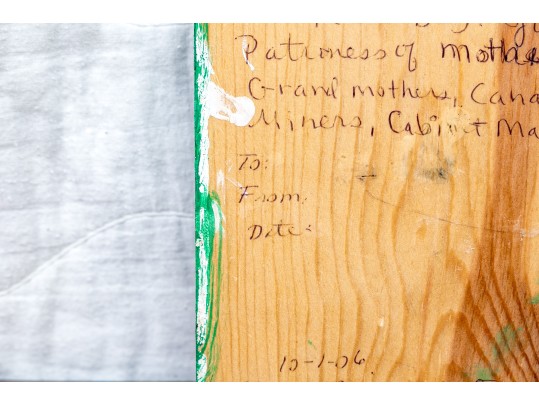 Patroness of Mothe
Grand mothers, Cana
Miners, Cabinet Ma
To:
From:
Date:
10-1-06